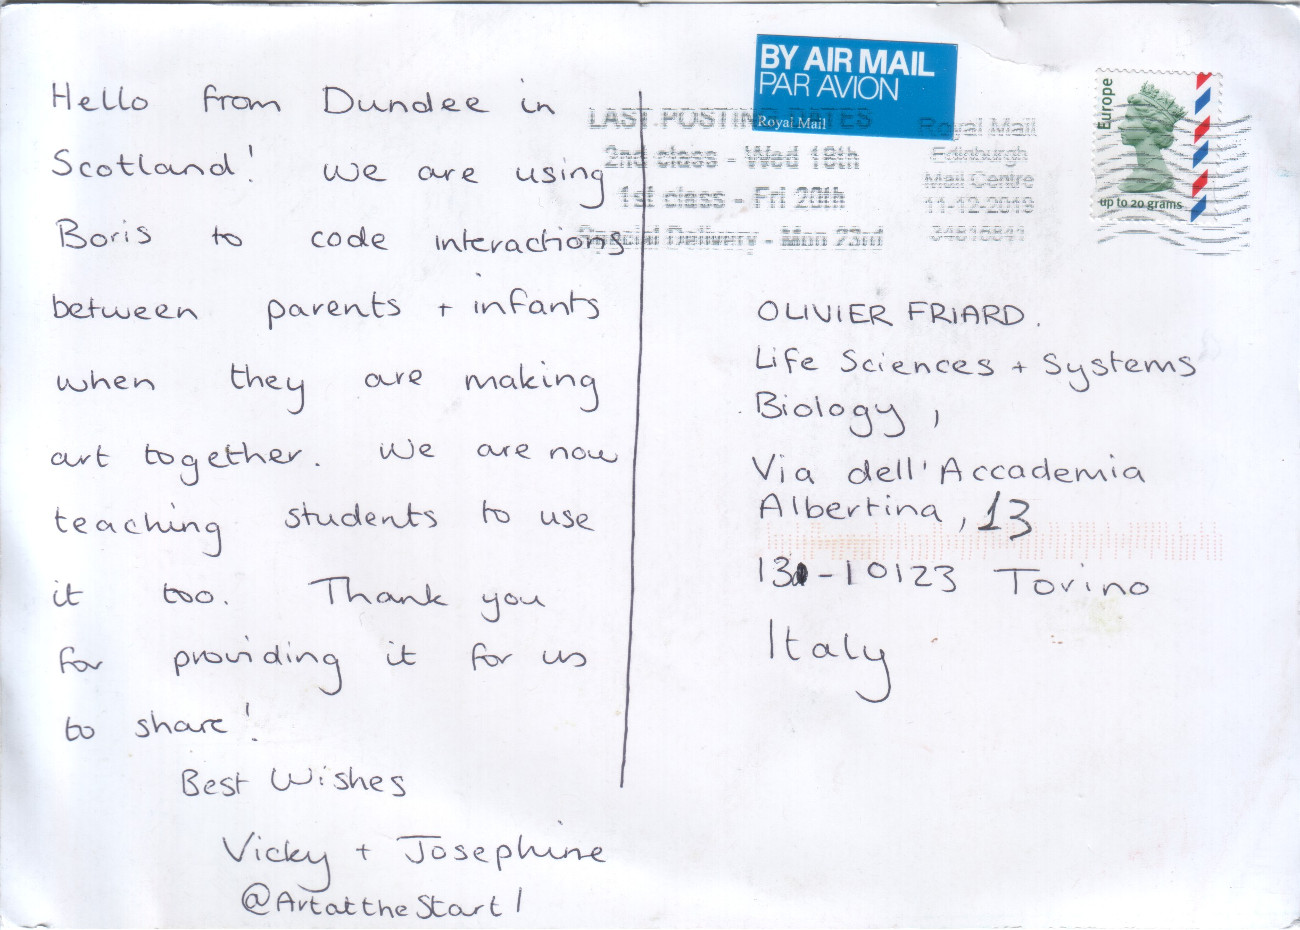 Hello from Dundee in
Scotland! We are using
Boris to code interactions
between parents + infants
when they are making
art together. We are now
teaching students to use
it too. Thank you
for providing it for us
to share!
Best Wishes
Vicky + Josephine
@ArtattheStart1
BY AIR MAIL
PAR AVION
Royal Mail
LAST POSTING DATES
2nd class - Wed 18th
1st class - Fri 20th
Special Delivery - Mon 23rd
Royal Mail
Edinburgh
Mail Centre
11-12-2019
34816841
Europe
up to 20 grams
OLIVIER FRIARD.
Life Sciences + Systems
Biology,
Via dell'Accademia
Albertina, 13
13 -10123 Torino
Italy